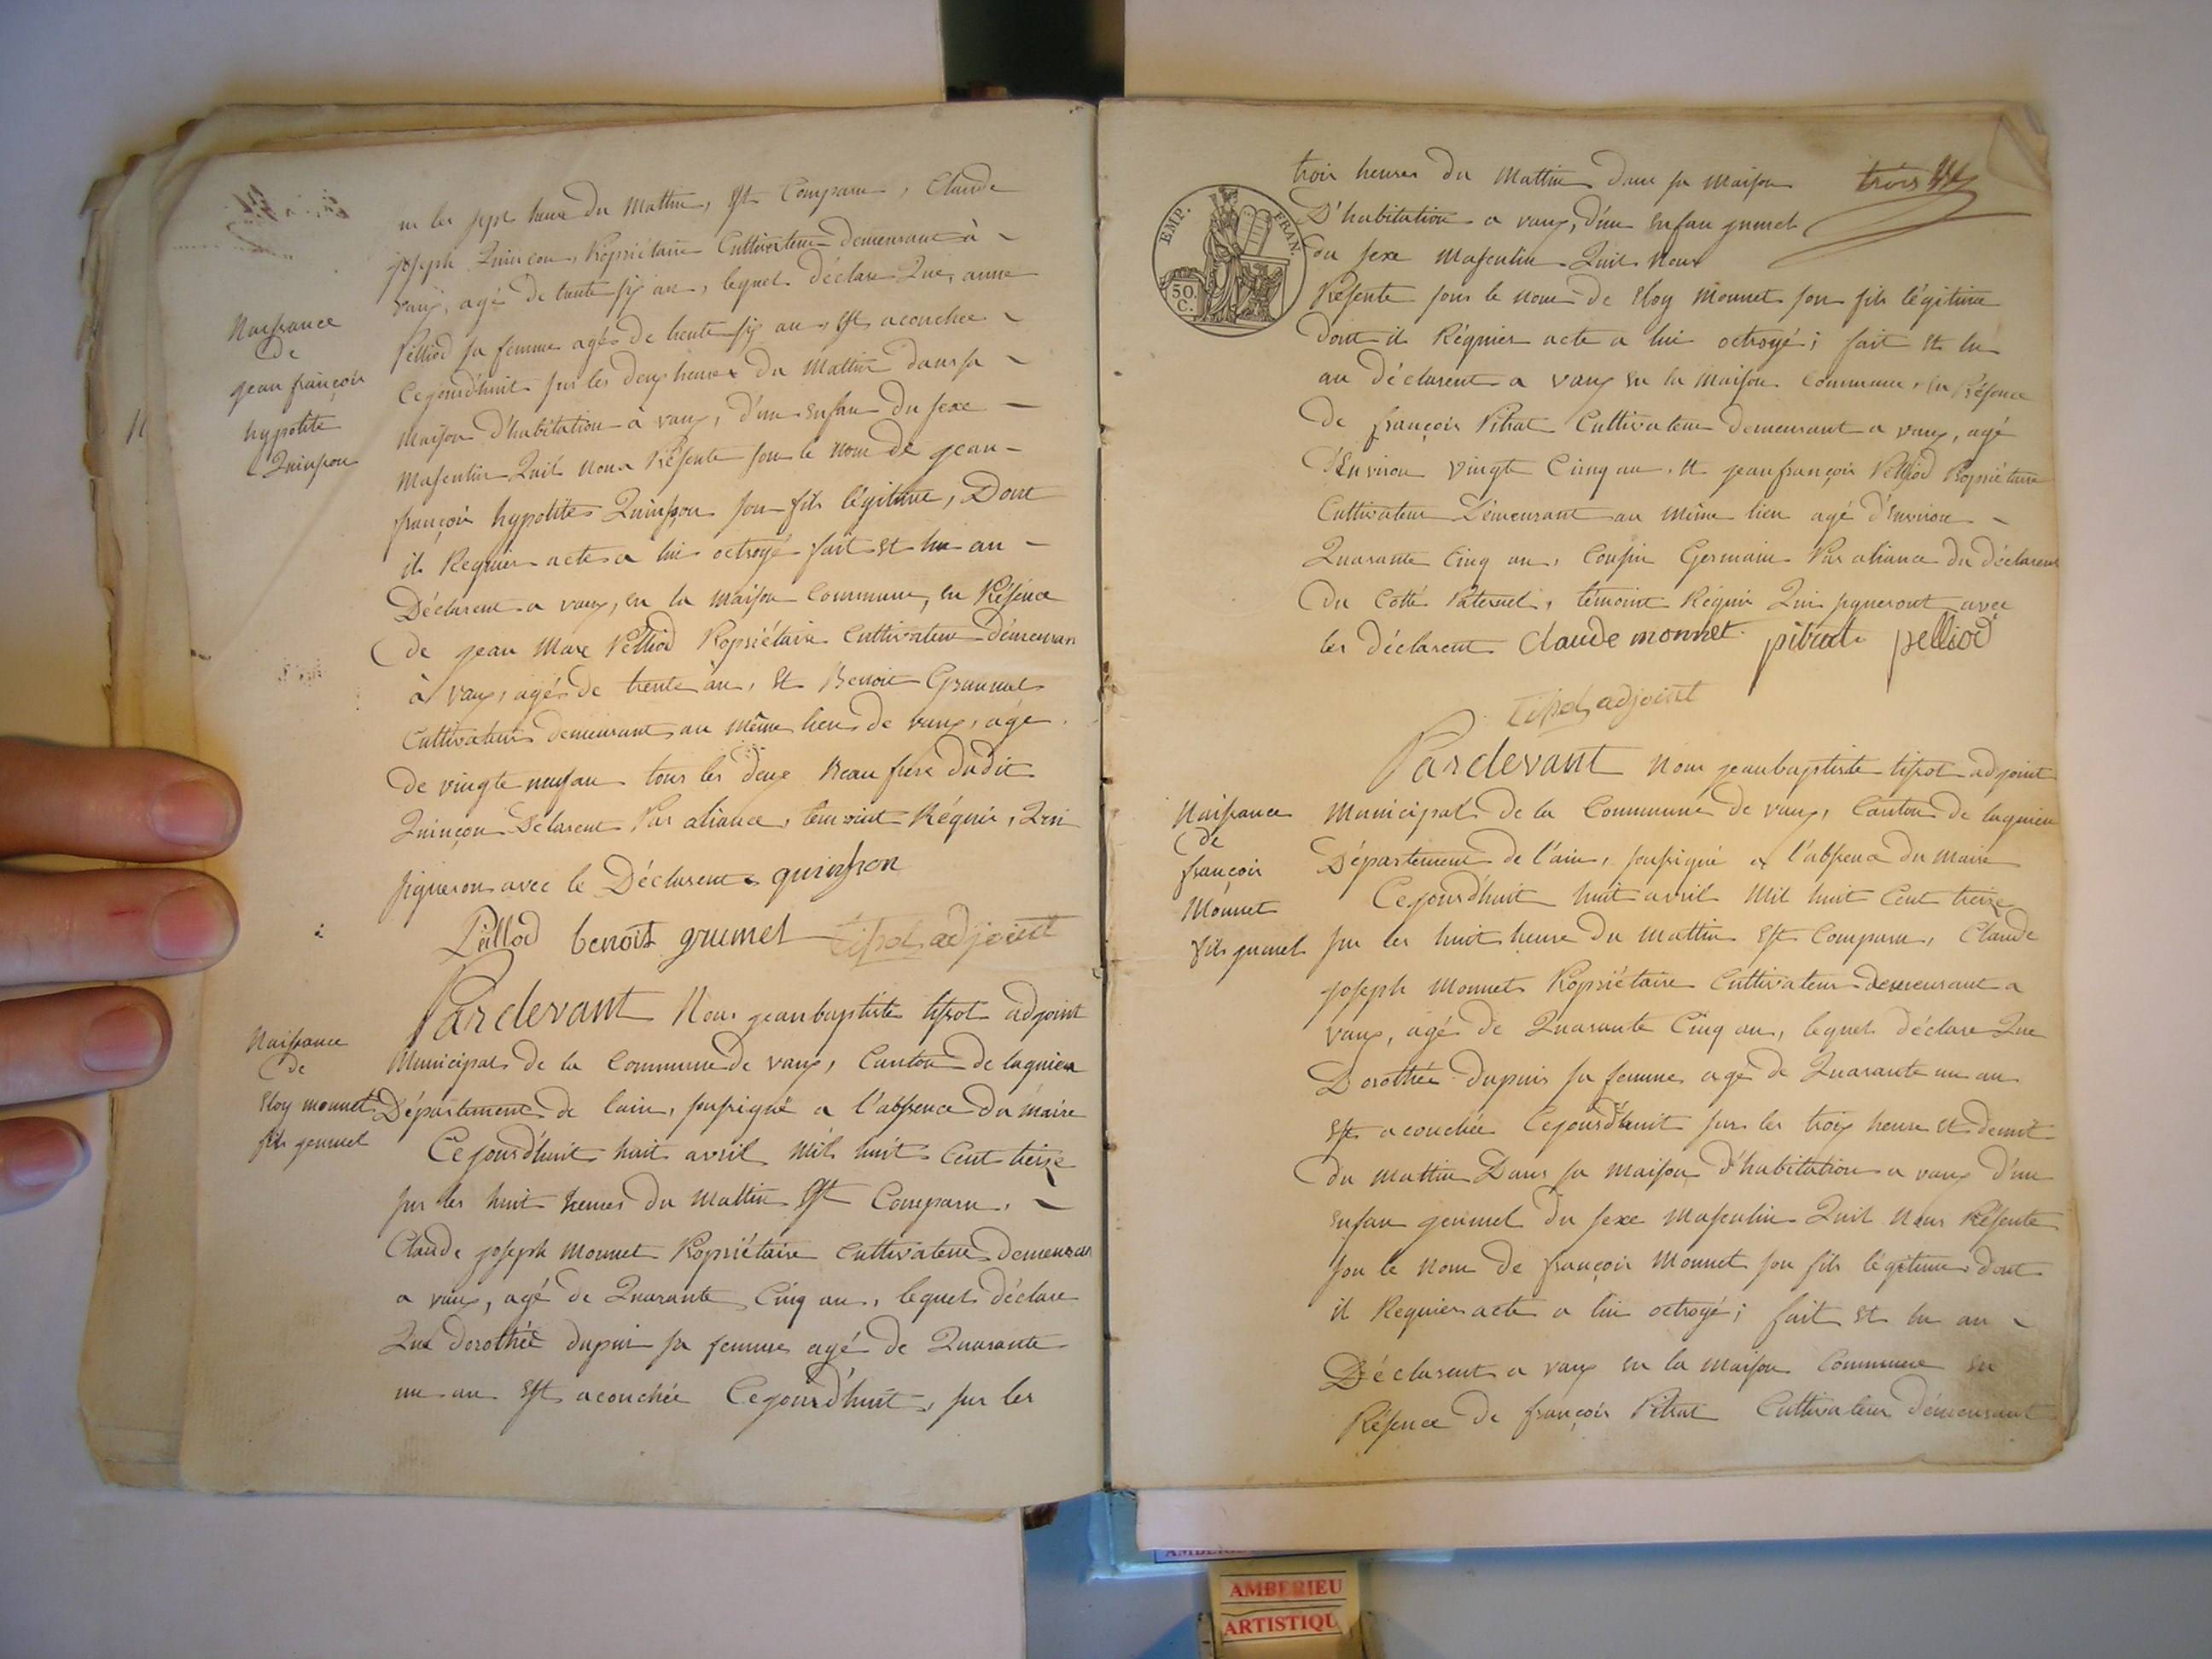 Naissance
de
jean françois
hypolite
Quinson
ur les sept heure du Mattin, Est Comparu, Claude
joseph Quinçon, Propriétaire Cultivateur demeurant à
vaux, agé de trente six an, lequel déclare Que, anne
Pelliod sa femme agés de trente six an, Est acouchée
Cejourd'huit sur les deux heures du Mattin dans sa
Maison d'habitation à vaux, d'un Enfan du sexe
Masculin Quil nous Présente sou le nom de jean
françois hypolite Quinsson son fils légitime, Dont
il Requier acte a lui octroyé fait Et lu au
Déclarent a vaux, en la Maison Commune, en Présence
de jean Marc Pelliod Propriétaire Cultivateur démeuran
à vaux, agés de trente an, Et Benoit Grumel
Cultivateur demeurant au même lieu de vaux, agé
de vingte neufan tous les deux Beau frere dudit
Quinçon Déclarent Par aliance, temoint Réquis, Qui
signeron avec le Déclarent quinson
Pelliod benoit grumel tissot adjoint
Naissance
de
Eloy monnet
fils gemmel
Pardevant Nous jeanbaptiste tissot adjoint
Municipal de la Commune de vaux, Canton de lagnieu
Département de lain, sousigné a l'absence du maire
Cejourd'huit huit avril mil huit Cent treize
sur les huit heures du Mattin Est Comparu,
Claude joseph Monnet Propriétaire Cultivateur demeuran
a vaux, agé de Quarante Cinq an, lequel déclare
Que dorothée dupuis sa femme agé de Quarante
un an Est acouchée Cejourd'huit, sur les
trois heures du Mattin dans sa Maison
D'habitation a vaux, d'un Enfan gumel
du sexe Masculin Quil Nous
Présente sous le nom de Eloy Monnet son fils légitime
dont il Réquier acte a lui octroyé; fait Et lu
au déclarent a vaux en la Maison Commune, en Présence
de françois Pitrat Cultivateur demeurant a vaux, agé
d'Environ vingte Cinq an, Et jeanfrançois Pelliod Propriétaire
Cultivateur Démeurant au même lieu agé d'Environ
Quarante Cinq an, Cousin Germain Par aliance du déclarent
du Cotté Paternel, témoint Réquis Qui signeront avec
les déclarent Claude monnet pitrat pelliod
tissot adjoint
trois
EMP. FRAN.
50. C.
Naissance
de
françois
Monnet
fils gumel
Pardevant Nous jeanbaptiste tissot adjoint
Municipal de la Commune de vaux, Canton de lagnieu
Département de l'ain, sousigné a l'absence du maire
Cejourd'huit huit avril Mil huit Cent treize
sur les huit heure du Mattin Est Comparu, Claude
joseph Monnet Propriétaire Cultivateur demeurant a
vaux, agé de Quarante Cinq an, lequel déclare Que
Dorothée dupuis sa femme agé de Quarante un an
Est acouchée Cejourd'huit sur les trois heure Et demit
du Mattin Dans sa Maison d'habitation a vaux d'un
Enfan gemmel du sexe Masculin Quil Nous Présente
sou le nom de françois Monnet son fils légitime dont
il Requier acte a lui octroyé; fait Et lu au
Déclarent a vaux en la Maison Commune en
Présence de françois Pitrat Cultivateur démeurant
AMBERIEU
ARTISTIQU